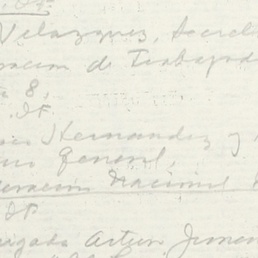 Velazquez, Secre
racion de Trabajado
8,
DF
Hernandez y
General,
eracion Nacional
DF
rigada Artur Jimen